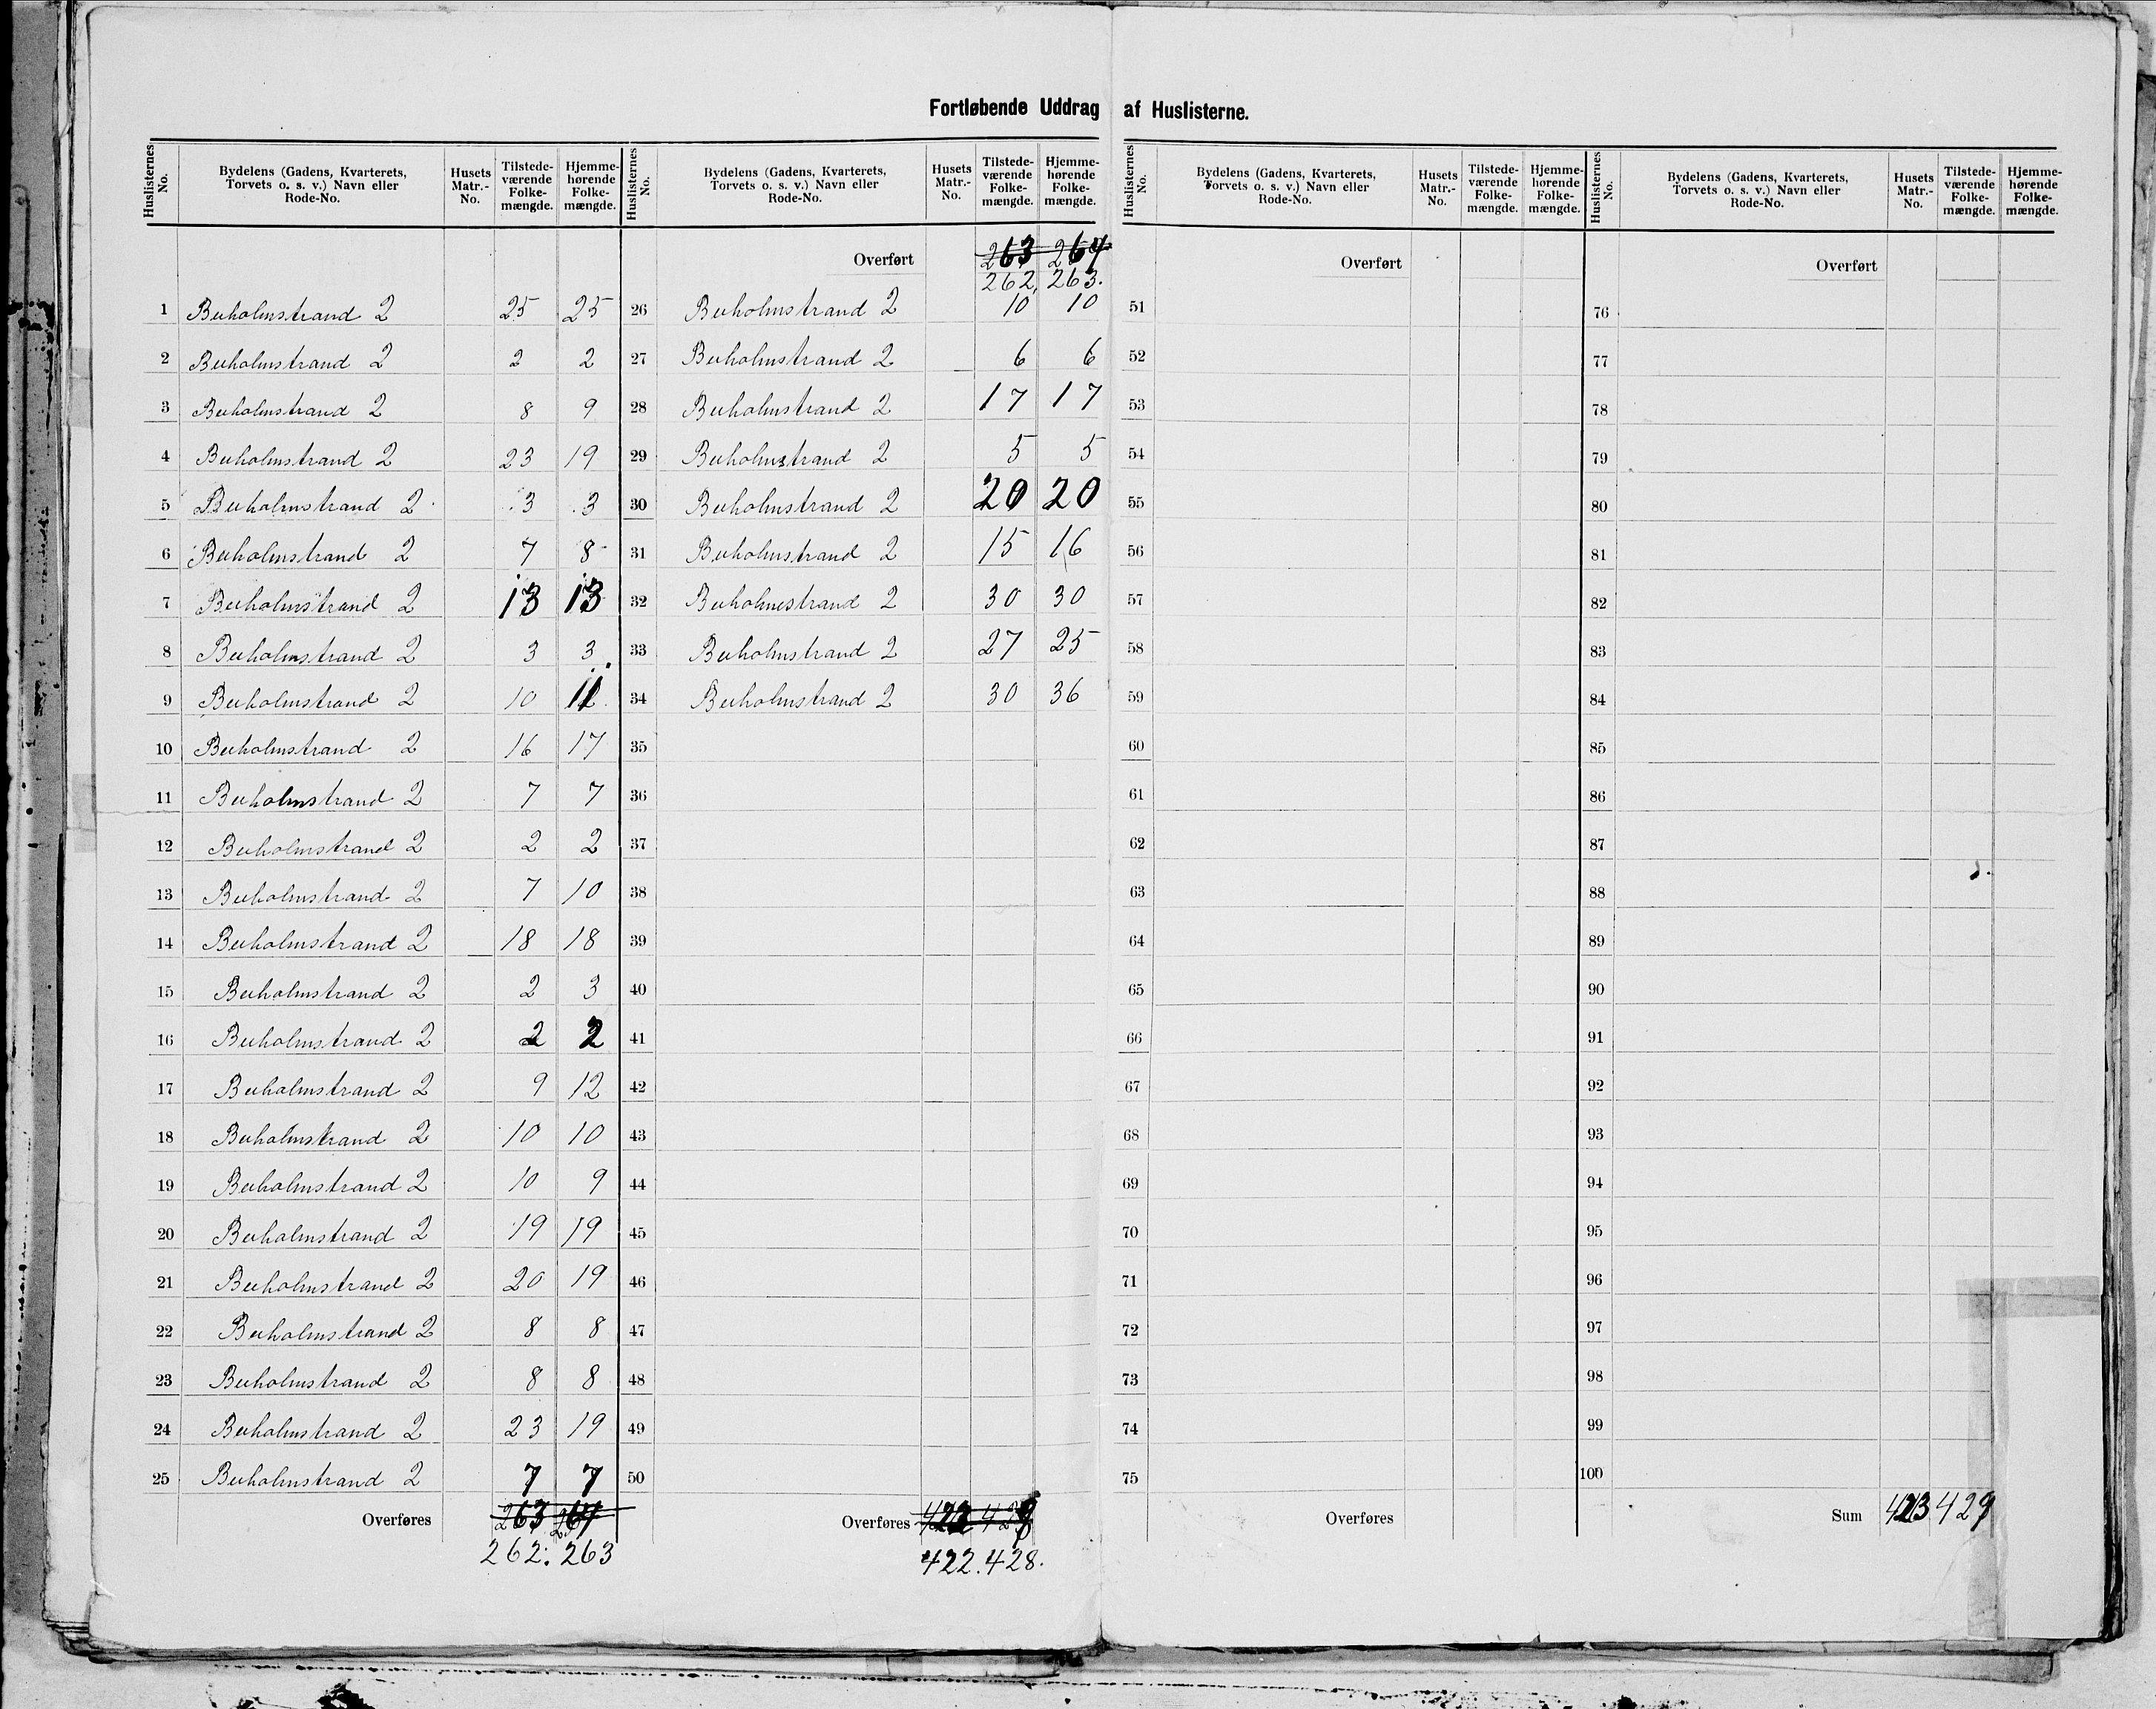 Fortløbende Uddrag af Huslisterne.
Huslisternes No. Bydelens (Gadens, Kvarterets, Torvets o. s. v.) Navn eller Rode-No. Husets Matr.-No. Tilstede-værende Folke-mængde. Hjemme-hørende Folke-mængde.
1 Buholmstrand 2 25 25
2 Buholmstrand 2 2 2
3 Buholmstrand 2 8 9
4 Buholmstrand 2 23 19
5 Buholmstrand 2 3 3
6 Buholmstrand 2 7 8
7 Buholmstrand 2 13 13
8 Buholmstrand 2 3 3
9 Buholmstrand 2 10 11
10 Buholmstrand 2 16 17
11 Buholmstrand 2 7 7
12 Buholmstrand 2 2 2
13 Buholmstrand 2 7 10
14 Buholmstrand 2 18 18
15 Buholmstrand 2 2 3
16 Buholmstrand 2 2 2
17 Buholmstrand 2 9 12
18 Buholmstrand 2 10 10
19 Buholmstrand 2 10 9
20 Buholmstrand 2 19 19
21 Buholmstrand 2 20 19
22 Buholmstrand 2 8 8
23 Buholmstrand 2 8 8
24 Buholmstrand 2 23 19
25 Buholmstrand 2 7 7
Overføres 263 264
262. 263
Huslisternes No. Bydelens (Gadens, Kvarterets, Torvets o. s. v.) Navn eller Rode-No. Husets Matr.-No. Tilstede-værende Folke-mængde. Hjemme-hørende Folke-mængde.
Overført 263 264
262, 263.
26 Buholmstrand 2 10 10
27 Buholmstrand 2 6 6
28 Buholmstrand 2 17 17
29 Buholmstrand 2 5 5
30 Buholmstrand 2 20 20
31 Buholmstrand 2 15 16
32 Buholmstrand 2 30 30
33 Buholmstrand 2 27 25
34 Buholmstrand 2 30 36
35
36
37
38
39
40
41
42
43
44
45
46
47
48
49
50
Overføres
422. 428.
Huslisternes No. Bydelens (Gadens, Kvarterets, Torvets o. s. v.) Navn eller Rode-No. Husets Matr.-No. Tilstede-værende Folke-mængde. Hjemme-hørende Folke-mængde.
Overført
51
52
53
54
55
56
57
58
59
60
61
62
63
64
65
66
67
68
69
70
71
72
73
74
75
Overføres
Huslisternes No. Bydelens (Gadens, Kvarterets, Torvets o. s. v.) Navn eller Rode-No. Husets Matr.-No. Tilstede-værende Folke-mængde. Hjemme-hørende Folke-mængde.
Overført
76
77
78
79
80
81
82
83
84
85
86
87
88
89
90
91
92
93
94
95
96
97
98
99
100
Sum 423 429